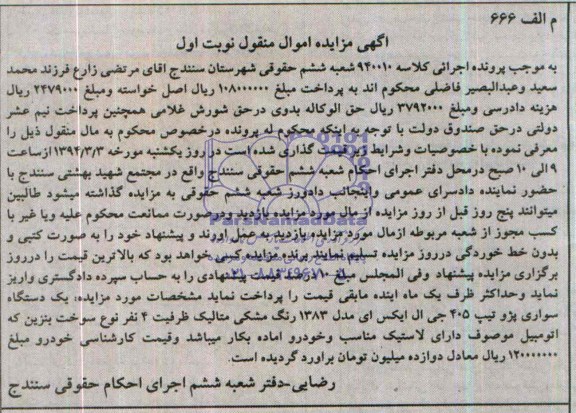 م الف ۶۶۶
آگهی مزایده اموال منقول نوبت اول
به موجب پرونده اجرائی کلاسه ۹۴۰۰۱۰ شعبه ششم حقوقی شهرستان سنندج اقای مرتضی زارع فرزند محمد
سعید وعبدالبصیر فاضلی محکوم اند به پرداخت مبلغ ۱۰۸۰۰۰۰۰۰ ریال اصل خواسته ومبلغ ۲۴۷۹۰۰۰ ریال
هزینه دادرسی ومبلغ ۳۷۹۲۰۰۰ ریال حق الوکاله بدوی درحق شورش غلامی همچنین پرداخت نیم عشر
دولتی درحق صندوق دولت با توجه به اینکه محکوم له پرونده درخصوص محکوم به مال منقول ذیل را
معرفی نموده با خصوصیات وشرایط زیر قیمت گذاری شده است در روز یکشنبه مورخه ۱۳۹۴/۳/۳ ازساعت
۹ الی ۱۰ صبح درمحل دفتر اجرای احکام شعبه ششم حقوقی سنندج واقع در مجتمع شهید بهشتی سنندج با
حضور نماینده دادسرای عمومی واینجانب دادورز شعبه ششم حقوقی به مزایده گذاشته میشود طالبین
میتوانند پنج روز قبل از روز مزایده از مال مورد مزایده بازدید ودرصورت ممانعت محکوم علیه ویا غیر با
کسب مجوز از شعبه مربوطه ازمال مورد مزایده بازدید به عمل اورند و پیشنهاد خود را به صورت کتبی و
بدون خط خوردگی درروز مزایده تسلیم نمایند برنده مزایده کسی خواهد بود که بالاترین قیمت را درروز
برگزاری مزایده پیشنهاد وفی المجلس مبلغ ۱۰ درصد قیمت پیشنهادی را به حساب سپرده دادگستری واریز
نماید وحداکثر ظرف یک ماه اینده مابقی قیمت را پرداخت نماید مشخصات مورد مزایده: یک دستگاه
سواری پژو تیپ ۴۰۵ جی ال ایکس ای مدل ۱۳۸۳ رنگ مشکی متالیک ظرفیت ۴ نفر نوع سوخت بنزین که
اتومبیل موصوف دارای لاستیک مناسب وخودرو اماده بکار میباشد وقیمت کارشناسی خودرو مبلغ
۱۲۰۰۰۰۰۰۰ ریال معادل دوازده میلیون تومان براورد گردیده است.
رضایی-دفتر شعبه ششم اجرای احکام حقوقی سنندج
ParsNamadData